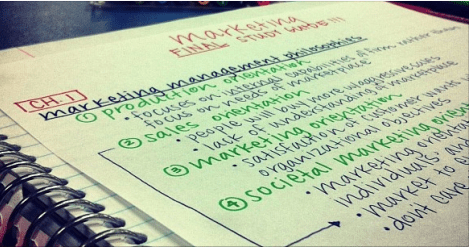 marketing
FINAL STUDY GUIDE!!!
CH. 1
marketing management philosophies
① production orientation
• focuses on internal capabilities of firm rather than
focus on need of marketplace
② sales orientation
• people will buy more w/aggressive sales
• lack of understanding of marketplace
③ marketing orientation
• satisfaction of customer wants
organizational objectives
④ societal marketing orien
• marketing orientat
individuals' and
• market to
• don't care